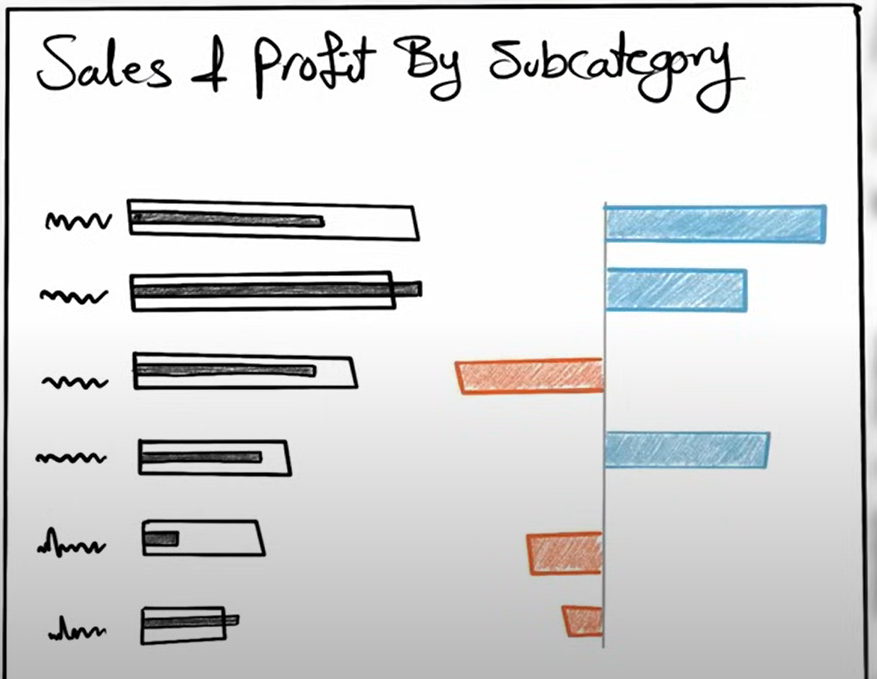 Sales & Profit By Subcategory